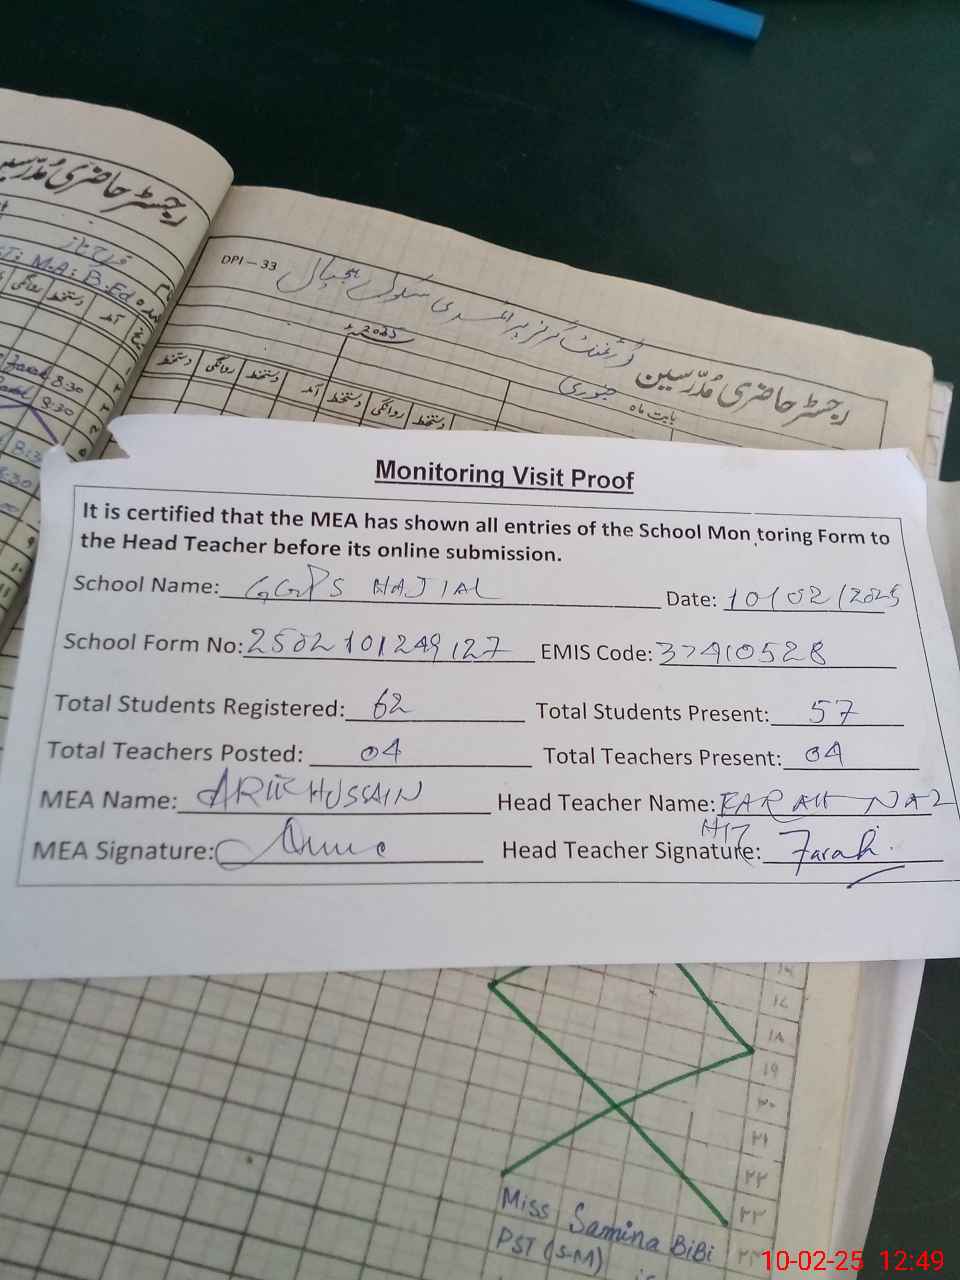 رجسٹر حاضری مُدرّسین
فرح ناز
M.A: B.Ed
آمد دستخط روانگی
Farah 8:30
8:30
8:30
DPI – 33
گورنمنٹ گرلز پرائمری سکول ہجیال
رجسٹر حاضری مُدرّسین
2025
بابت ماہ جنوری
دستخط روانگی دستخط آمد دستخط روانگی دستخط
Monitoring Visit Proof
It is certified that the MEA has shown all entries of the School Mon toring Form to
the Head Teacher before its online submission.
School Name: GGPS HAJIAL Date: 10/02/2025
School Form No: 2502101249127 EMIS Code: 37410528
Total Students Registered: 62 Total Students Present: 57
Total Teachers Posted: 04 Total Teachers Present: 04
MEA Name: ARIF HUSSAIN Head Teacher Name: FARAH NAZ
MEA Signature: Head Teacher Signature: Farah
۱۷
۱۸
۱۹
۲۰
۲۱
۲۲
۲۳
Miss Samina BiBi
PST (S-M)
10-02-25 12:49